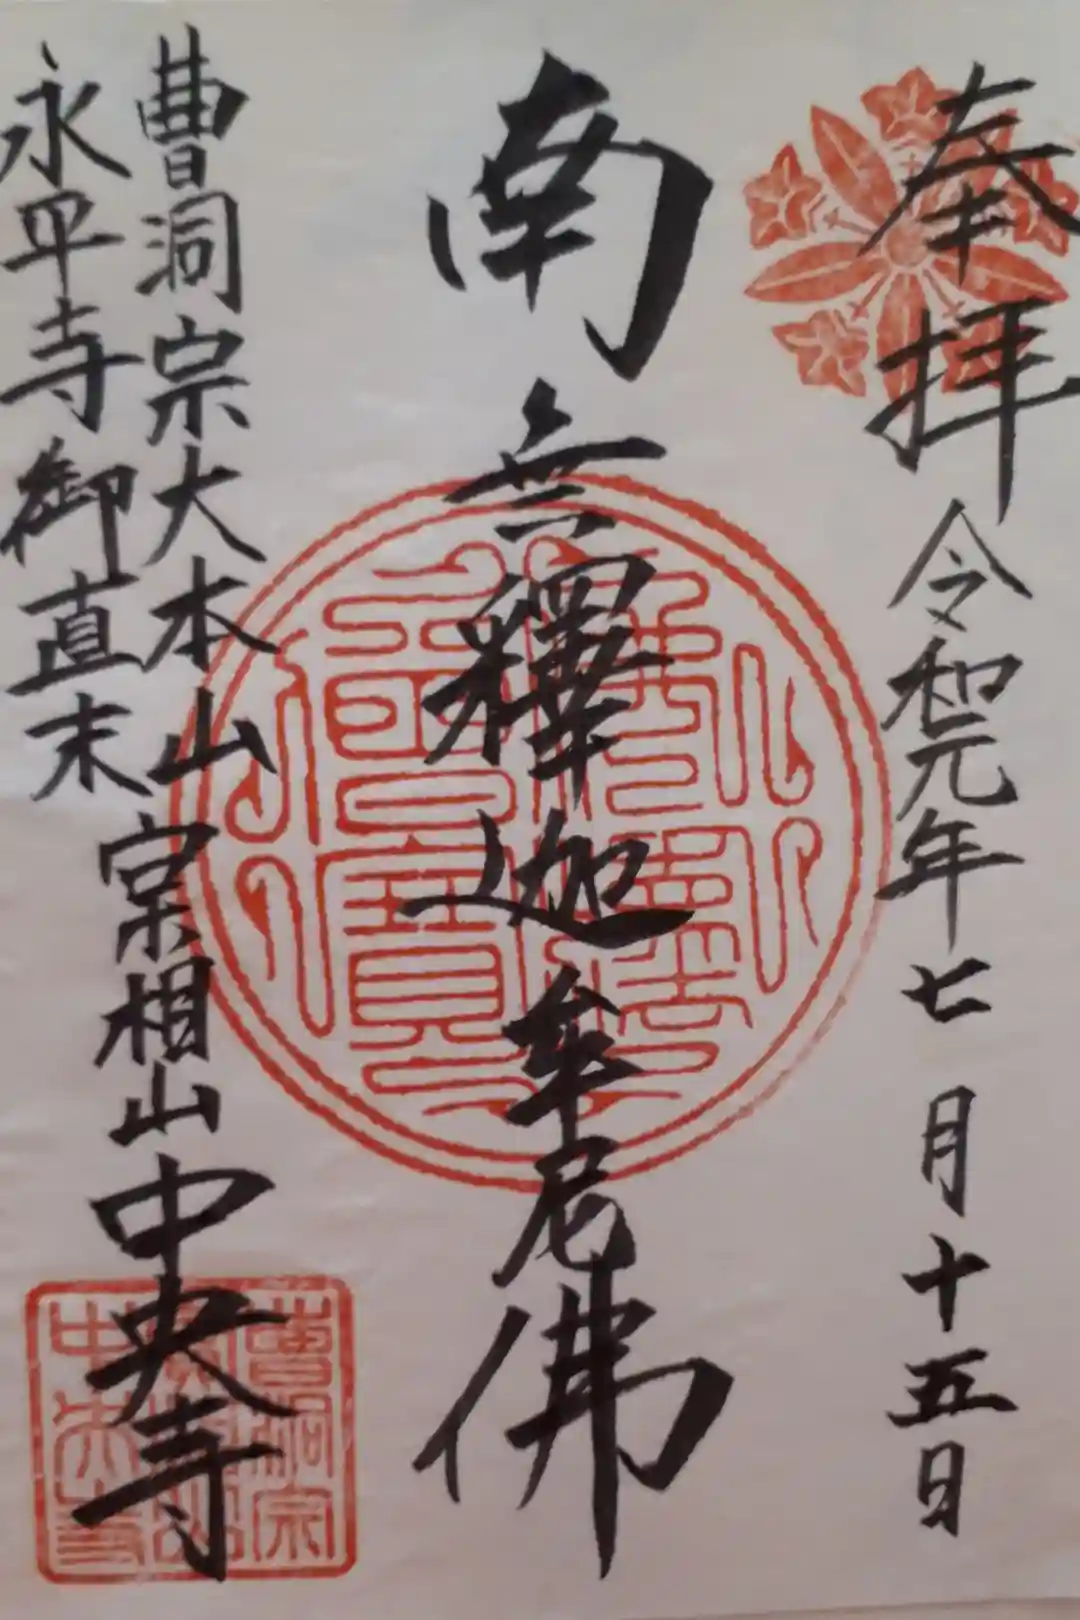 奉拝 令和元年七月十五日
南無釋迦牟尼佛
曹洞宗大本山
永平寺御直末
宲相山中央寺
曹洞宗
中央寺